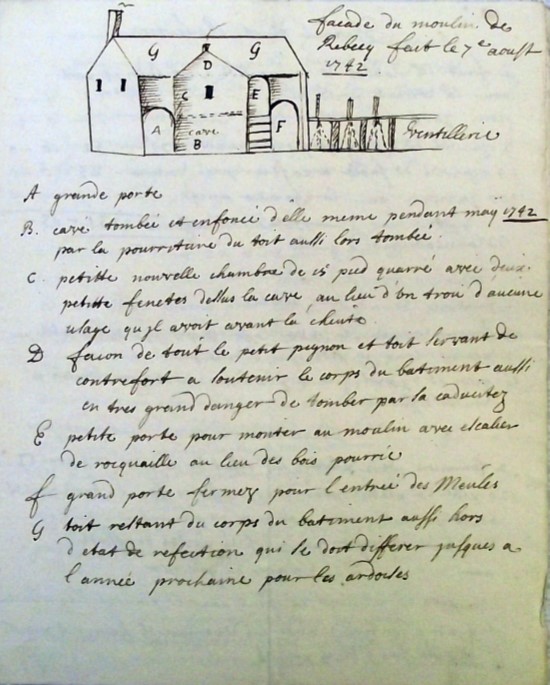 facade du moulin de
Rebecq fait le 7e aoust
1742
G
G
D
C
E
A
cave
B
F
Ventillerie
A grande porte
B. cave tombée et enfoncée d'elle meme pendant maÿ 1742
par la pourriture du toit aussi lors tombée
C petitte nouvelle chambre de 15 pied quarré avec deux
petitte fenetes dessus la cave au lieu d'un trou d'aucune
usage qu'jl avoit avant la cheute
D facon de tout le petit pignon et toit servant de
contrefort a soutenir le corps du batiment aussi
en tres grand danger de tomber par sa caducitez
E petite porte pour monter au moulin avec escalier
de rocquaille au lieu des bois pourrie
f grand porte fermez pour l'entrée des Meules
G toit restant du corps du batiment aussi hors
d'etat de refection qui se doit differer jusques a
l'année prochaine pour les ardoises